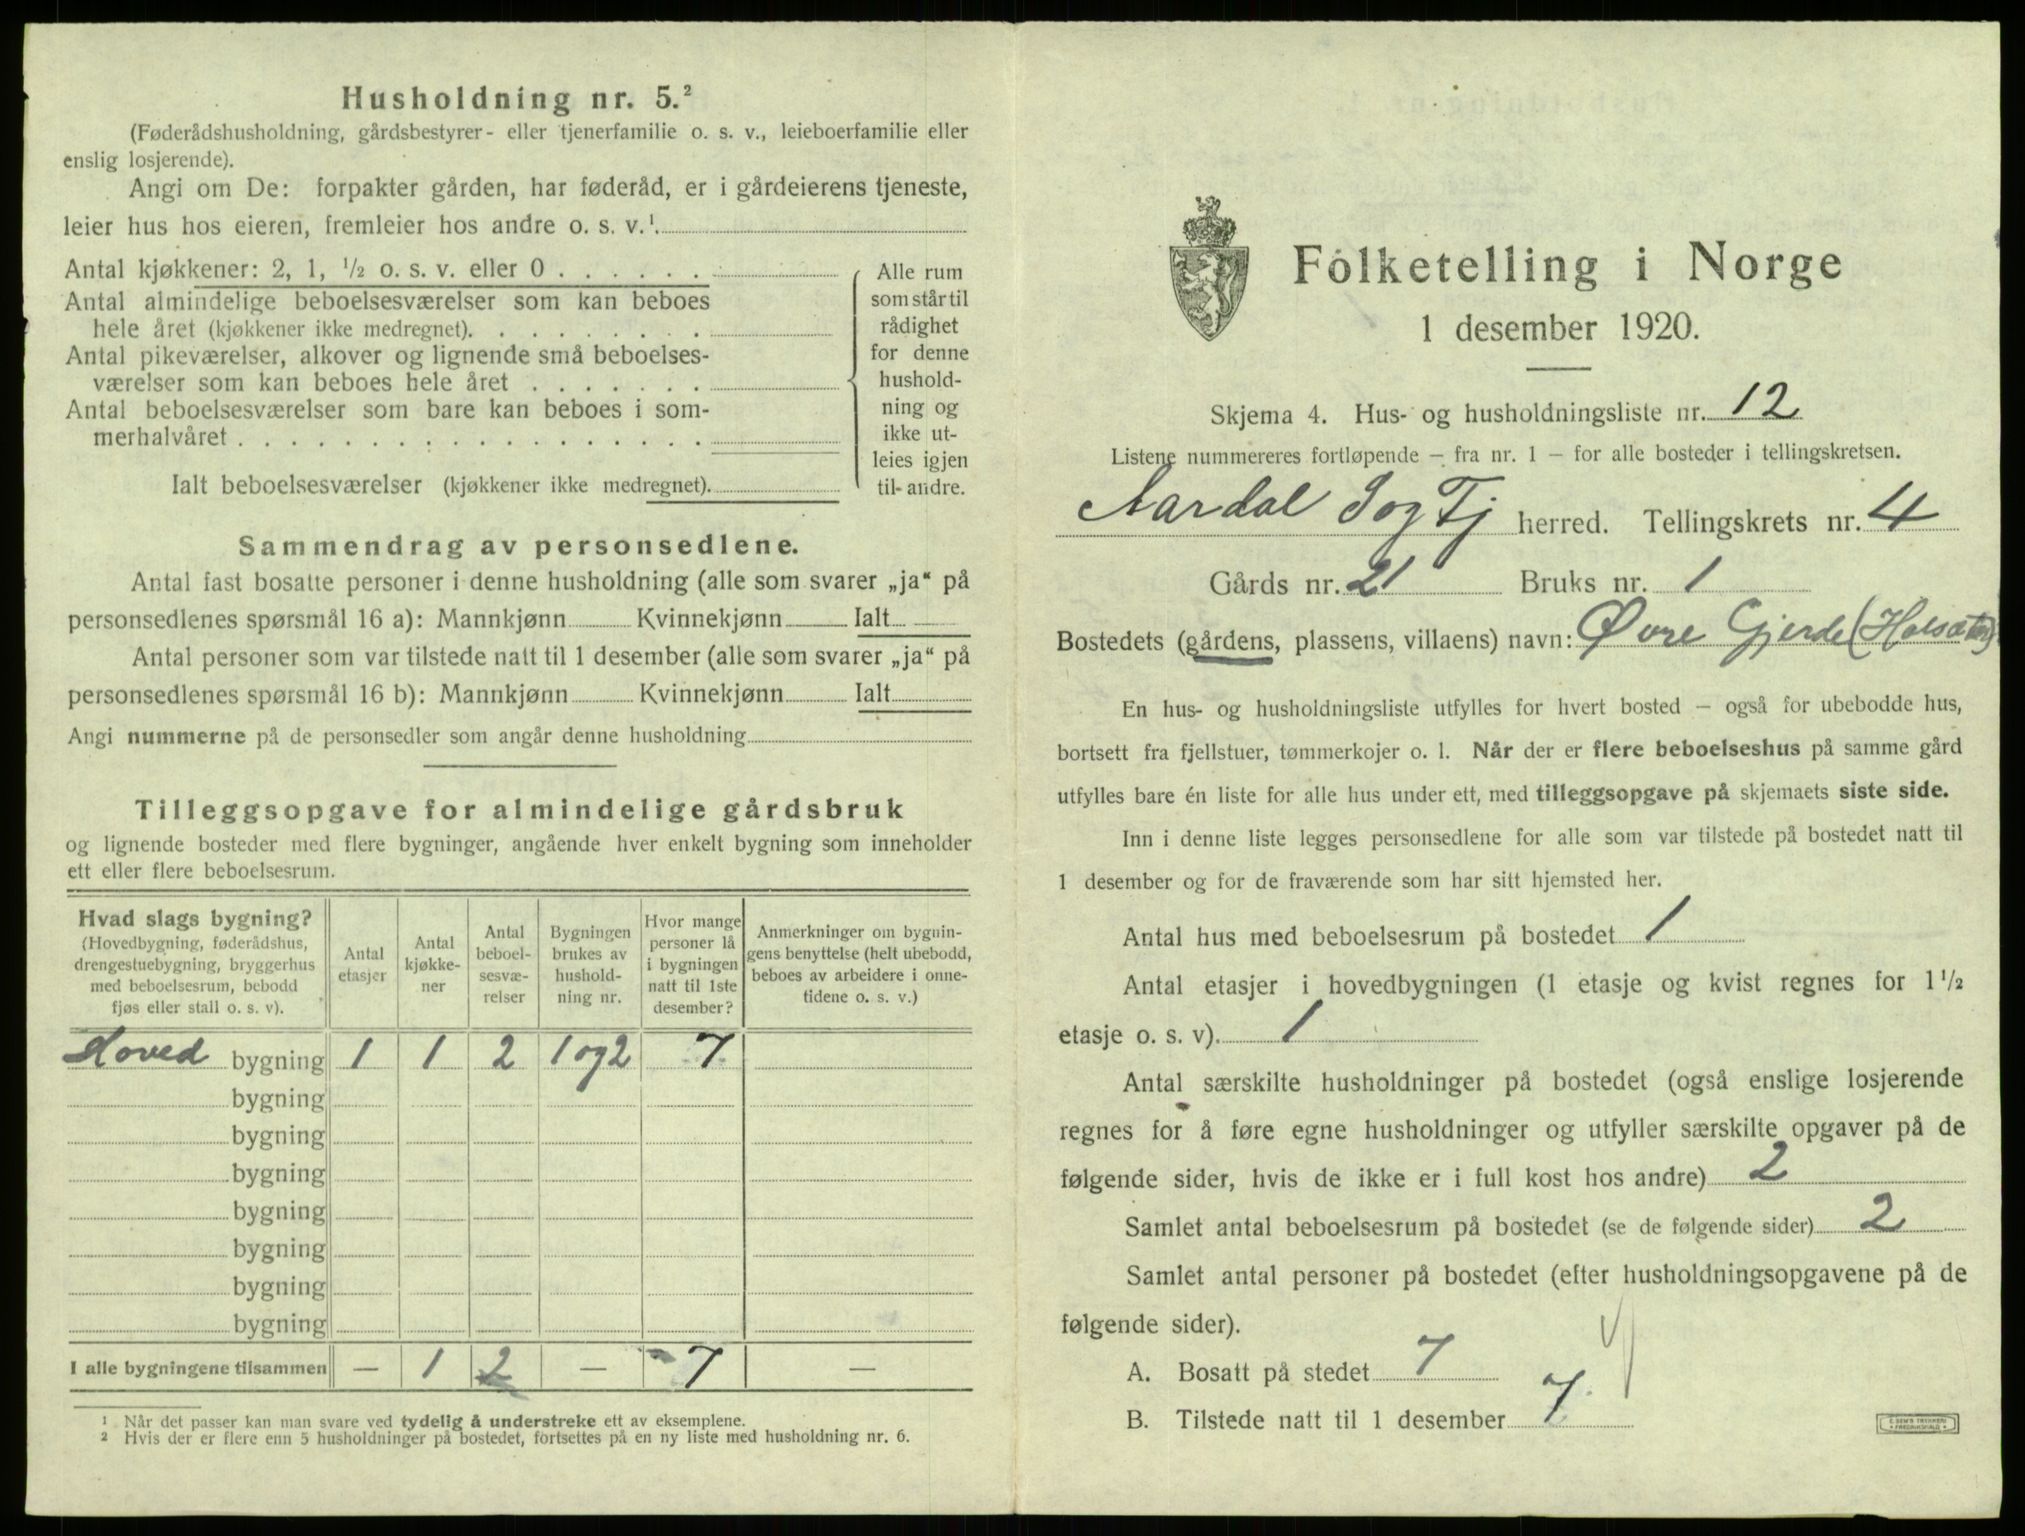 Husholdning nr. 5.²
(Føderådshusholdning, gårdsbestyrer- eller tjenerfamilie o. s. v., leieboerfamilie eller
enslig losjerende).
Angi om De: forpakter gården, har føderåd, er i gårdeierens tjeneste,
leier hus hos eieren, fremleier hos andre o. s. v.¹
Antal kjøkkener: 2, 1, ½ o. s. v. eller 0
Antal almindelige beboelsesværelser som kan beboes
hele året (kjøkkener ikke medregnet)
Antal pikeværelser, alkover og lignende små beboelses-
værelser som kan beboes hele året
Antal beboelsesværelser som bare kan beboes i som-
merhalvåret
Ialt beboelsesværelser (kjøkkener ikke medregnet)
Alle rum
som står til
rådighet
for denne
hushold-
ning og
ikke ut-
leies igjen
til andre.
Sammendrag av personsedlene.
Antal fast bosatte personer i denne husholdning (alle som svarer „ja“ på
personsedlenes spørsmål 16 a): Mannkjønn Kvinnekjønn Ialt
Antal personer som var tilstede natt til 1 desember (alle som svarer „ja“ på
personsedlenes spørsmål 16 b): Mannkjønn Kvinnekjønn Ialt
Angi nummerne på de personsedler som angår denne husholdning
Tilleggsopgave for almindelige gårdsbruk
og lignende bosteder med flere bygninger, angående hver enkelt bygning som inneholder
ett eller flere beboelsesrum.
Hvad slags bygning?
(Hovedbygning, føderådshus,
drengestuebygning, bryggerhus
med beboelsesrum, bebodd
fjøs eller stall o. s. v).
Antal
etasjer
Antal
kjøkke-
ner
Antal
beboel-
sesvæ-
relser
Bygningen
brukes av
hushold-
ning nr.
Hvor mange
personer lå
i bygningen
natt til 1ste
desember?
Anmerkninger om bygnin-
gens benyttelse (helt ubebodd,
beboes av arbeidere i onne-
tidene o. s. v.)
Hoved bygning 1 1 2 1 og 2 7
bygning
bygning
bygning
bygning
bygning
bygning
bygning
I alle bygningene tilsammen — 1 2 — 7 —
¹ Når det passer kan man svare ved tydelig å understreke ett av eksemplene.
² Hvis der er flere enn 5 husholdninger på bostedet, fortsettes på en ny liste med husholdning nr. 6.
Folketelling i Norge
1 desember 1920.
Skjema 4. Hus- og husholdningsliste nr. 12
Listene nummereres fortløpende – fra nr. 1 – for alle bosteder i tellingskretsen.
Aardal Sog Fj herred. Tellingskrets nr. 4
Gårds nr. 21 Bruks nr. 1
Bostedets (gårdens, plassens, villaens) navn: Øvre Gjerde
En hus- og husholdningsliste utfylles for hvert bosted – også for ubebodde hus,
bortsett fra fjellstuer, tømmerkojer o. l. Når der er flere beboelseshus på samme gård
utfylles bare én liste for alle hus under ett, med tilleggsopgave på skjemaets siste side.
Inn i denne liste legges personsedlene for alle som var tilstede på bostedet natt til
1 desember og for de fraværende som har sitt hjemsted her.
Antal hus med beboelsesrum på bostedet 1
Antal etasjer i hovedbygningen (1 etasje og kvist regnes for 1½
etasje o. s. v). 1
Antal særskilte husholdninger på bostedet (også enslige losjerende
regnes for å føre egne husholdninger og utfyller særskilte opgaver på de
følgende sider, hvis de ikke er i full kost hos andre) 2
Samlet antal beboelsesrum på bostedet (se de følgende sider) 2
Samlet antal personer på bostedet (efter husholdningsopgavene på de
følgende sider).
A. Bosatt på stedet 7
B. Tilstede natt til 1 desember 7